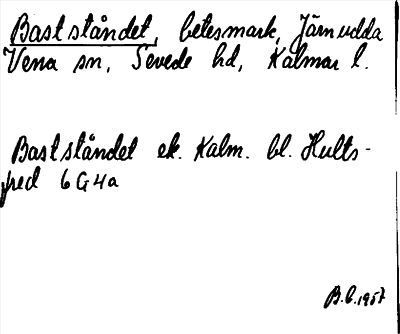 Bastståndet, betesmark, Järnudda
Vena sn, Sevede hd, Kalmar l.
Bastståndet ek. Kalm. bl. Hults-
fred 6G4a
B.L. 1957